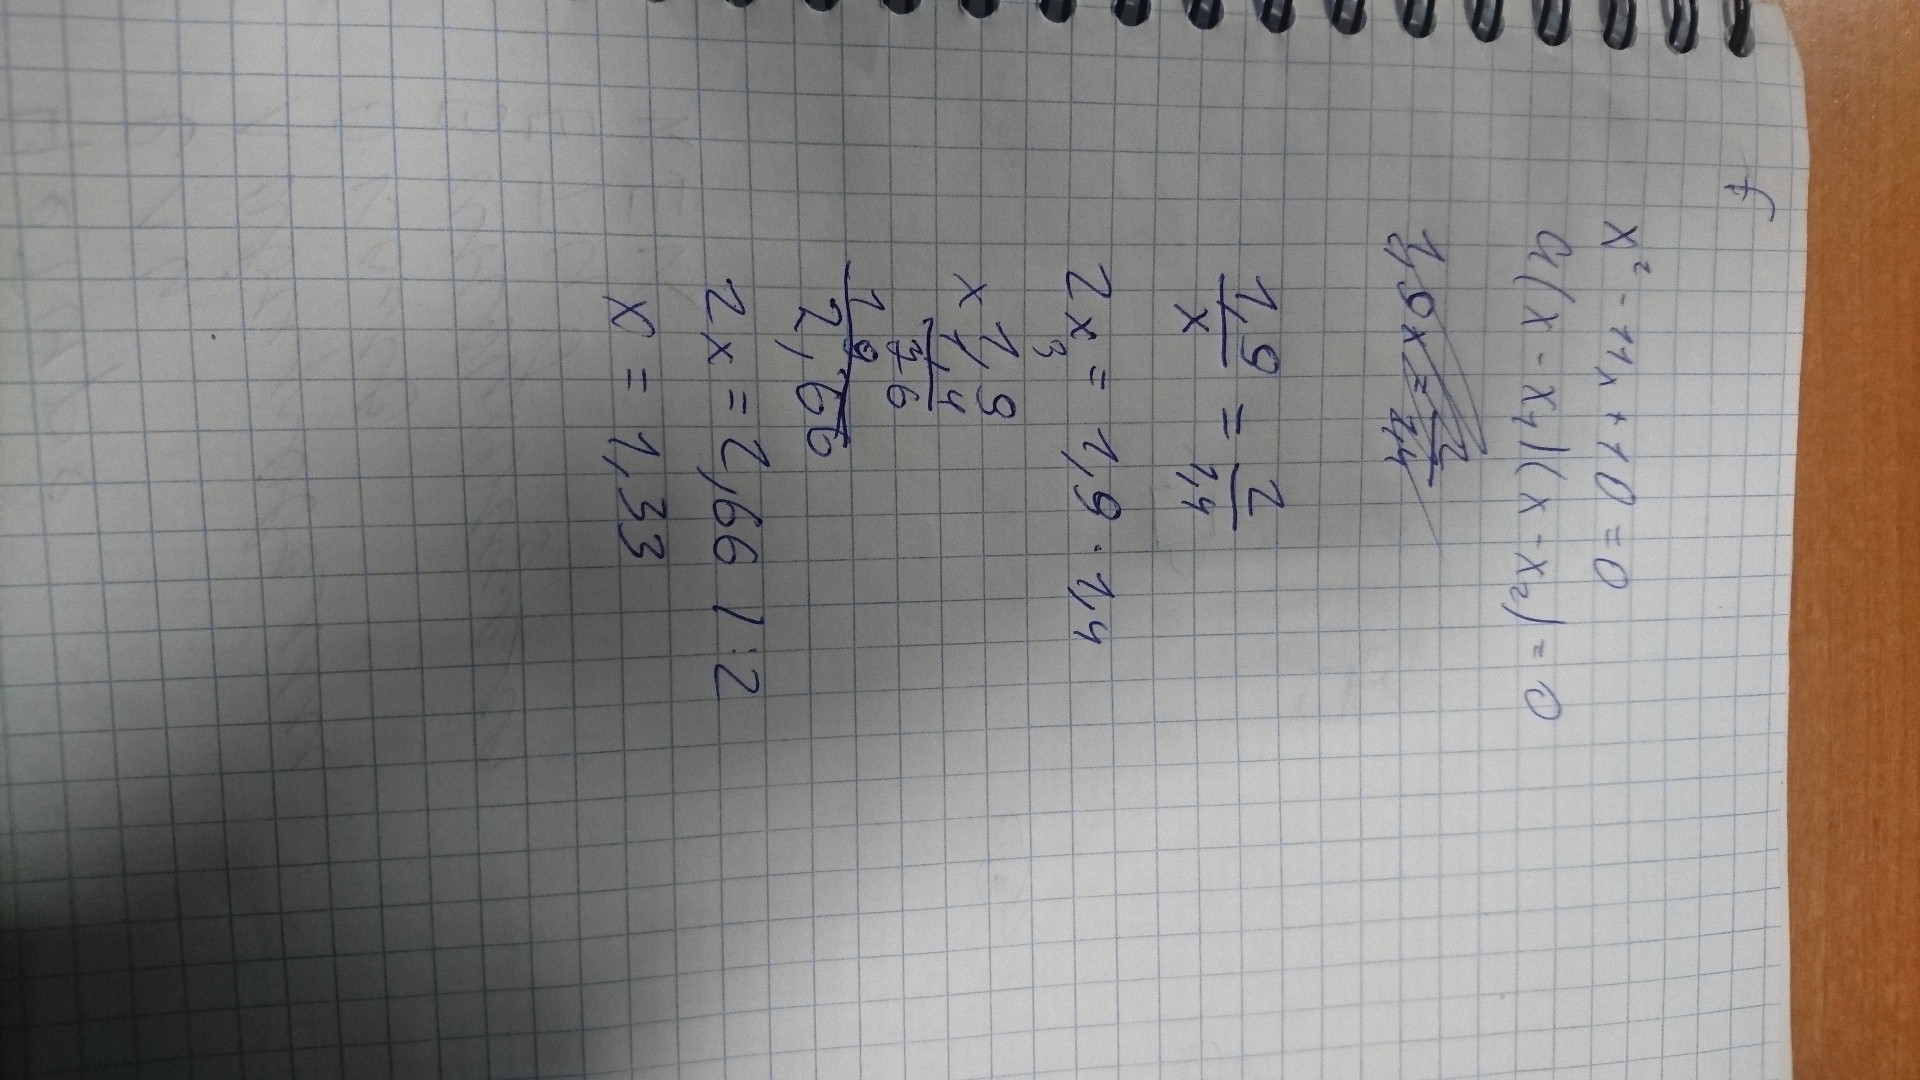 f
x² - 11x + 10 = 0
a(x - x₁)(x - x₂) = 0
1,9/x = 2/1,4
2x = 1,9 · 1,4
3
x 1,9
1,4
7 6
1 9
2,66
2x = 2,66 / :2
x = 1,33